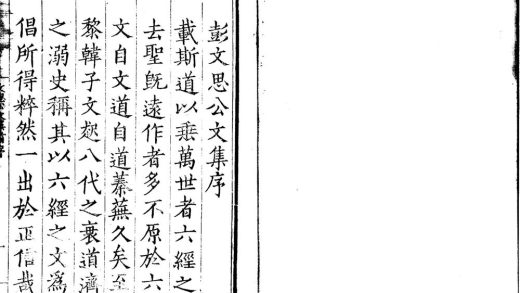 彭文思公文集序
載斯道以垂萬世者六經之
去聖旣遠作者多不原於六
文自文道自道蓁蕪久矣至
黎韓子文起八代之衰道濟
之溺史稱其以六經之文爲
倡所得粹然一出於正信哉